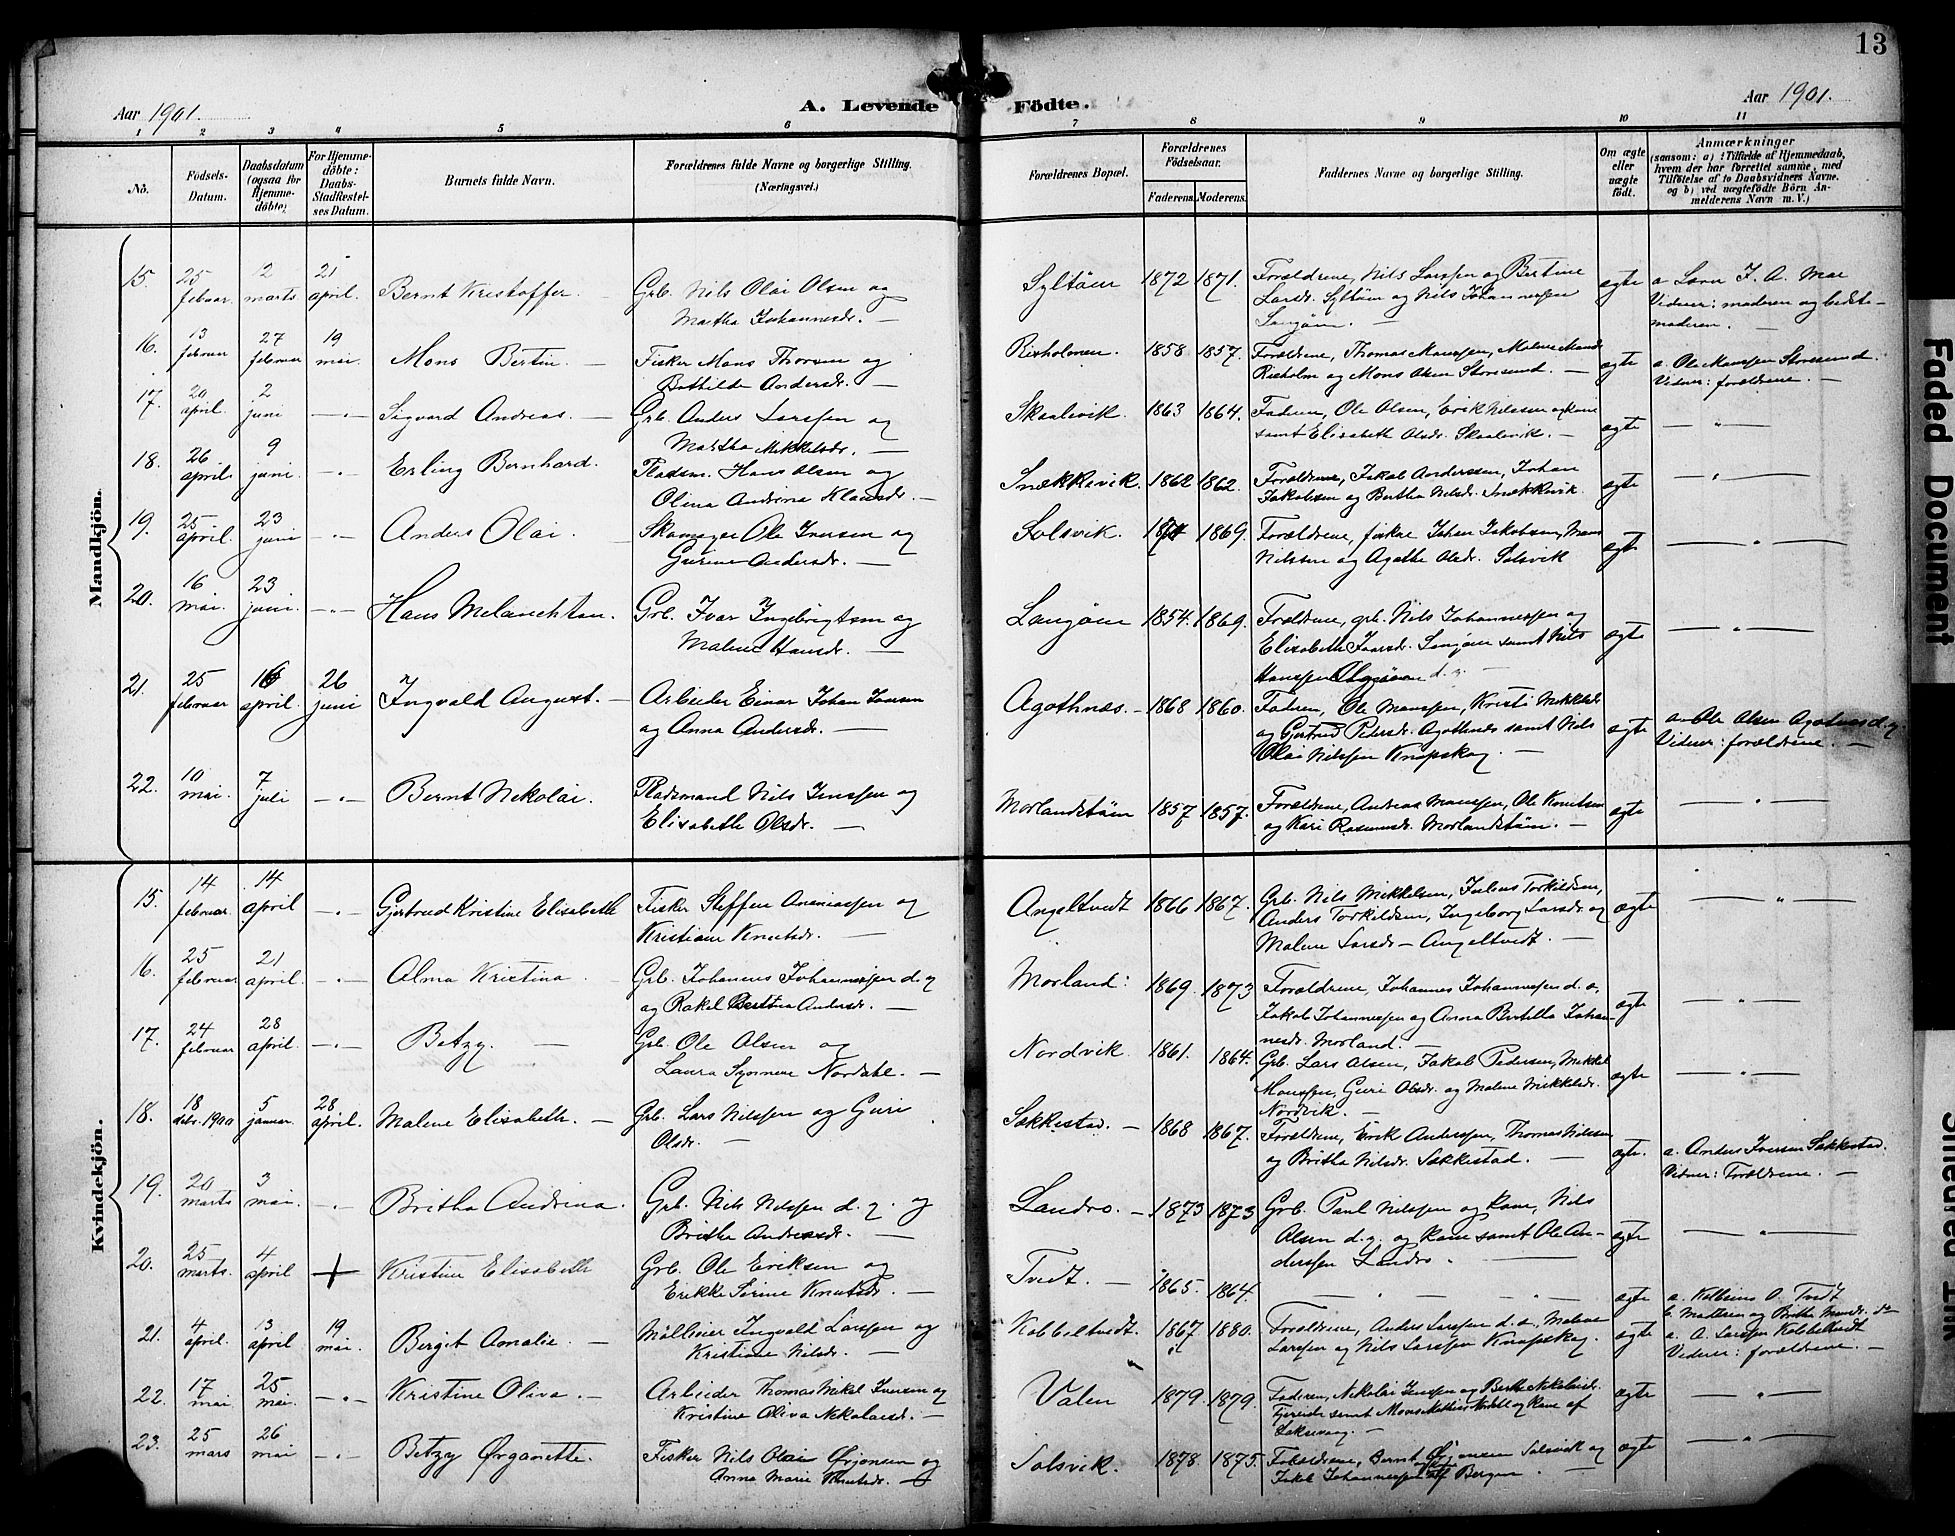 13
Aar 1901.
A. Levende Födte.
Aar 1901.
1 2 3 4 5 6 7 8 9 10 11
No.
Födsels-Datum.
Daabsdatum (ogsaa for Hjemme-döbte)
For Hjemme-döbte: Daabs-Stadfæstel-ses Datum.
Barnets fulde Navn.
Forældrenes fulde Navne og borgerlige Stilling. (Næringsvei.)
Forældrenes Bopæl.
Forældrenes Födselsaar.
Faderens. Moderens.
Faddernes Navne og borgerlige Stilling.
Om ægte eller uægte födt.
Anmærkninger
(saasom: a) i Tilfælde af Hjemmedaab, hvem der har forrettet samme, med Tilföielse af to Daabsvidners Navne. og b) ved uægtefödte Börn An-melderens Navn m. V.)
Mandkjön.
15. 25 februar. 12 marts 21 april. Bernt Kristoffer. Grb. Nils Olai Olsen og Martha Johannesdr. — Syltöen 1872 1871. Forældrene, Nils Larssen og Bertine Larsdr. Syltöen og Nils Johannessen Langöen. — ægte a. Vidner: moderen og bedste-moderen. —
16. 13 februar 27 februar 19 mai. Mons Bertin. — Fisker Mons Thorsen og Bothilde Andersdr. — Risholmen. 1858. 1857. Forældrene, Thomas Monssen, Malene Monsdr. Risholm og Mons Olsen Storesund. — ægte a. Ole Monssen Storesund. Vidner: forældrene. —
17. 20 april. 2 juni —"— Sigvard Andreas. — Grb. Anders Larssen og Martha Mikkelsdr. — Skaalevik. 1863 1864. Faderen, Ole Olsen, Erik Nilssen og kone samt Elisabeth Olsdr. Skaalevik. — ægte — " —
18. 26 april. 9 juni. —"— Erling Bernhard. Pladsm. Hans Olsen og Olina Andrina Klausdr. — Snekkevik. 1862 1862. Forældrene, Jakob Anderssen, Johan Jakobsen og Bertha Nilsdr. Snekkevik. ægte — " —
19. 25 april. 23 juni —"— Anders Olai. — Skomager Ole Iversen og Gurine Andersdr. — Solsvik. 1869. Forældrene, fiskre Johan Jakobsen, Mons Nilssen og Agathe Olsdr. Solsvik ægte — " —
20. 16 mai. 23 juni. —"— Hans Melanchton. Grb. Ivar Ingebrigtsen og Malene Hansdr. — Langöen 1854. 1869. Forældrene, grb. Nils Johannessen og Elisabeth Iversdr. Langöen samt Nils Hanssen d. y. — ægte — " —
21. 25 februar april. 26 juni Ingvald August. — Arbeider Einar Johan Iversen og Anna Andersdr. — Agothnæs. — 1868 1860. Faderen, Ole Monssen, Kristi Mikkelsdr og Gjertrud Pedersdr. Agothnes samt Nils Olai Nilssen Knapskog. — ægte a. Ole Olsen Agotnes d. y. Vidner: forældrene. —
22. 10 mai. 7 juli —"— Bernt Nikolai. Pladsmand Nils Jenssen og Elisabeth Olsdr. — Morlandstöen 1857 1857. Forældrene, Andreas Monssen, Ole Knutsen og Kari Rasmusdr. Morlandstöen. — ægte — " —
Kvindekjön.
15. 14 februar. 14 april —"— Gjertrud Kristine Elisabeth Fisker Steffen Ananiassen og Kristiane Knutsdr. — Angeltvedt 1866 1867. Grb. Nils Mikkelsen, Julius Torkildsen, Anders Torkildsen, Ingeborg Larsdr. og Malene Larsdr — Angeltvedt. — ægte — " —
16. 25 februar 21 april. —"— Alma Kristina. Grb. Johannes Johannessen d. y og Rakel Berttia Andersdr. — Morland: 1869. 1873 Forældrene, Johannes Johannessen d. æ, Jakob Johannessen og Anna Botilla Johan-nesdr. Morland. — ægte — " —
17. 24 februar 28 april. —"— Betzy. — Grb. Ole Olsen og Laura Synneve Nordahl. — Nordvik. 1861. 1864. Grb. Lars Olsen, Jakob Pedersen, Mikkel Monssen, Guri Olsdr. og Malene Mikkelsdr. Nordvik. — ægte — " —
18. 18 debr. 1900 5 januar. 28 april. Malene Elisabeth. — Grb. Lars Nilssen og Guri Olsdr. — Sækkestad. — 1868 1867. Forældrene, Erik Anderssen, Thomas Nilssen og Britha Nilsdr. Sækkestad. — ægte. a. Anders Iversen Sækkestad. Vidner: Forældrene. —
19. 20 marts 3 mai. —"— Britha Andrina. Grb. Nils Nilssen d. y. og Brithe Andersdr. — Landro. — 1873 1873 Grb. Paul Nilssen og kone, Nils Olsen d. y. og kone samt Ole An-derssen Landro. — ægte — " —
20. 25 marts. 4 april + Kristine Elisabeth Grb. Ole Eriksen og Erikke Serine Knutsdr. — Tvedt. — 1865. 1864. — " — " — ægte a. O. Tvedt
21. 4 april. 13 april 19 mai. Bergit Amalie. — Möllner Ingvald Larssen og Kristiane Nilsdr. — Kobbeltvedt. 1867 1880. Forældrene, Anders Larssen d. æ, Malene Larssen og Nils Larssen Knapskog. ægte a. A. Larssen Kobbeltvedt Vidner: forældrene. —
22. 17 mai 25 mai. —"— Kristine Oliva. — Arbeider Thomas Mikal Iversen og Kristine Oliva Nikolaisdr. — Valen 1879. 1879. Faderen, Nikolai Jenssen og Berthe Nikolaisdr. samt Mons og kone af ægte — " —
23. 25 mars 26 mai —"— Betzy Ørganette. Fisker Nils Olai Ørjonsen og Anna Marie Knutsdr. — Solsvik. 1878 1875. Forældrene, Bernt Solsvik og Jakob Johannessen af Bergen. — ægte — " —
Faded Document
Smeared Ink